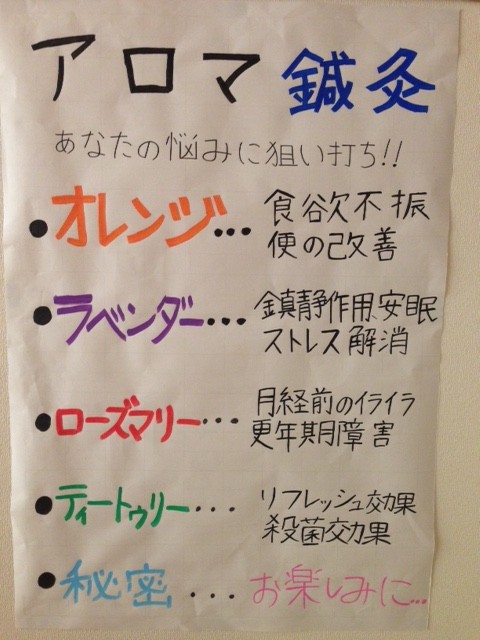 アロマ 鍼灸
あなたの悩みに狙い打ち!!
●オレンジ... 食欲不振
便の改善
●ラベンダー... 鎮静作用、安眠
ストレス解消
●ローズマリー... 月経前のイライラ
更年期障害
●ティートゥリー... リフレッシュ効果
殺菌効果
●秘密... お楽しみに...